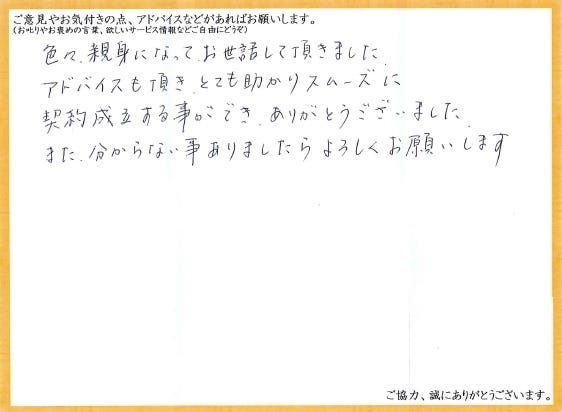 ご意見やお気付きの点、アドバイスなどがあればお願いします。
(お叱りやお褒めの言葉、欲しいサービス情報などご自由にどうぞ)
色々、親身になって、お世話して頂きました。
アドバイスも頂き、とても助かりスムーズに
契約成立する事ができ、ありがとうございました。
また、分からない事ありましたらよろしくお願いします
ご協力、誠にありがとうございます。